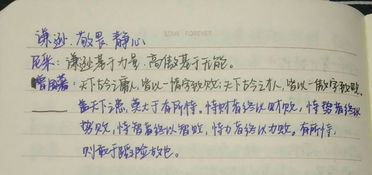 LOVE FOREVER
谦逊、敬畏、静心
尼采：谦逊基于力量，高傲基于无能。
曾国藩：天下古今之庸人，皆以一惰字致败；天下古今之才人，皆以一傲字致败。
盖天下之恶，莫大于有所恃。恃财者终以财败，恃势者终以
势败，恃智者终以智败，恃力者终以力败。有所恃，
则敢于蹈险故也。